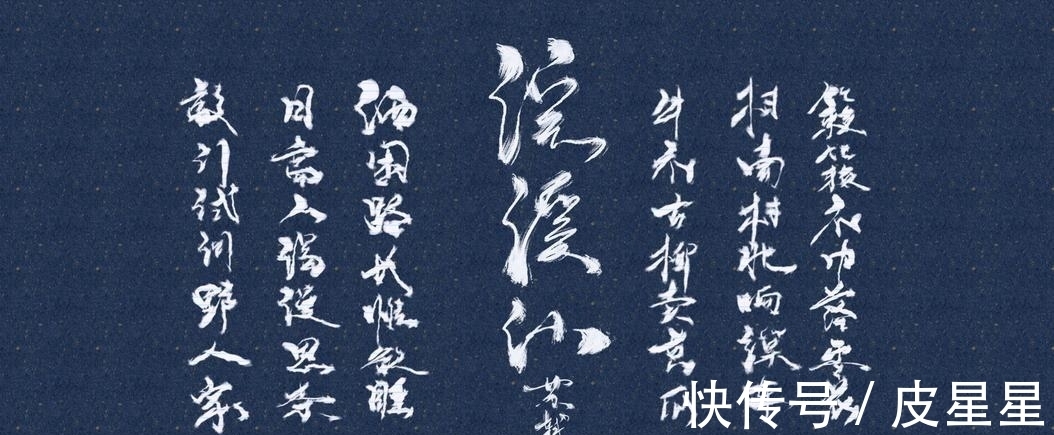 簌簌衣巾落枣花
村南村北响缲车
牛衣古柳卖黄瓜
浣溪沙
苏轼
酒困路长惟欲睡
日高人渴漫思茶
敲门试问野人家
快传号 / 皮星星